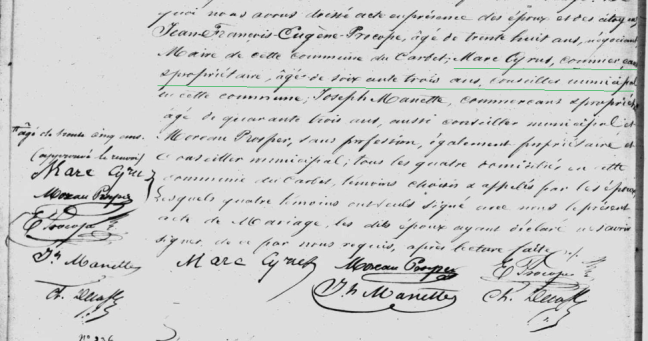 quoi nous avons dressé acte en présence des époux et des citoyens
Jean-François-Eugène-Procope, âgé de trente huit ans, négociant
Maire de cette commune du Carbet; Marc Cyrus, commerçant
& propriétaire, âgé de soixante trois ans, conseiller municipal
en cette commune; Joseph Manette, commerçant & propriétaire
âgé de quarante trois ans, aussi conseiller municipal et
Moreau Prosper, sans profession, également propriétaire et
conseiller municipal; tous les quatre domiciliés en cette
commune du Carbet, témoins choisis & appelés par les époux,
lesquels quatre témoins ont seuls signé avec nous le présent
acte de Mariage, les dits époux ayant déclaré ne savoir
signer, de ce par nous requis, après lecture faite.
âgé de trente cinq ans.
(approuvé le renvoi)
Marc Cyrus
Moreau Prosper
E Procope
Jh Manette
Ch.
Marc Cyrus
Moreau Prosper
E Procope
Jh Manette
Ch.